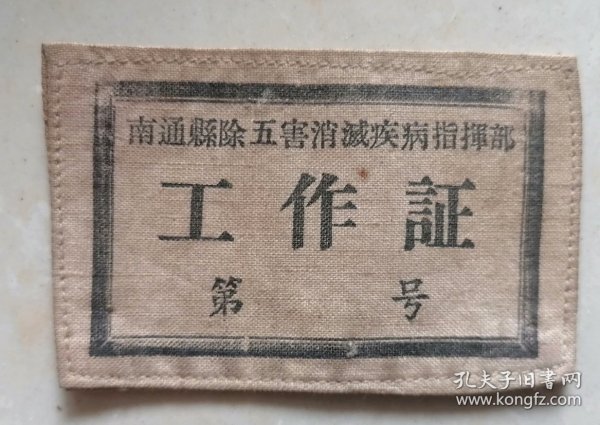 南通縣除五害消滅疾病指揮部
工作証
第 号
孔夫子旧書网
www.kongfz.com